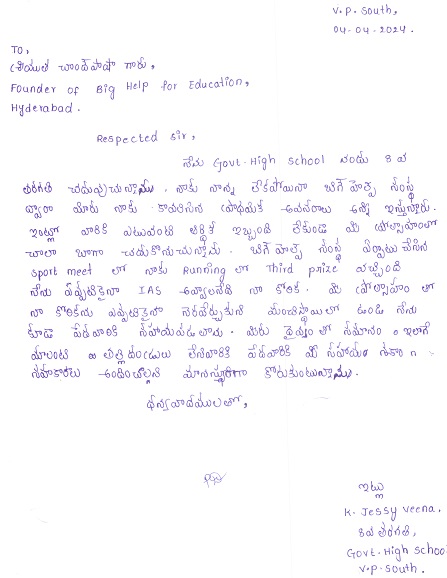 V.P. South,
04-04-2024.
To,
శ్రీయుత చాంద్‌పాషా గారు,
Founder of Big Help for Education,
Hyderabad.
Respected sir,
నేను Govt. High school నందు 8 వ
తరగతి చదువుచున్నాను. నాకు నాన్న లేకపోయినా బిగ్ హెల్ప్ సంస్థ
ద్వారా మీరు నాకు కావలసిన అవసరాలు అన్నీ ఇస్తున్నారు.
ఇంట్లో వారికి ఎటువంటి ఇబ్బంది లేకుండా మీ ప్రోత్సాహంతో
చాలా బాగా చదుకొనుచున్నాను. బిగ్ హెల్ప్ సంస్థ ఏర్పాటు చేసిన
sport meet లో నాకు Running లో Third prize వచ్చింది
నేను ఎప్పటికైనా IAS అవ్వాలనేది నా కోరిక. మీ ప్రోత్సాహం తో
నా కోరికను ఎప్పటికైనా నెరవేర్చుకుని మంచిస్థాయిలో ఉండి నేను
కూడా పేదవారికి సహాయపడతాను. మీరు దైవం తో సమానం. ఇలాగే
మాలాంటి తల్లిదండ్రులు లేనివారికి పేదవారికి మీ సహాయ
సహకారాలు అందించాలని మనస్ఫూర్తిగా కోరుకుంటున్నాను.
ధన్యవాదములతో,
ఇట్లు
K. Jessy Veena.
8వ తరగతి,
Govt. High school
V.P. South.